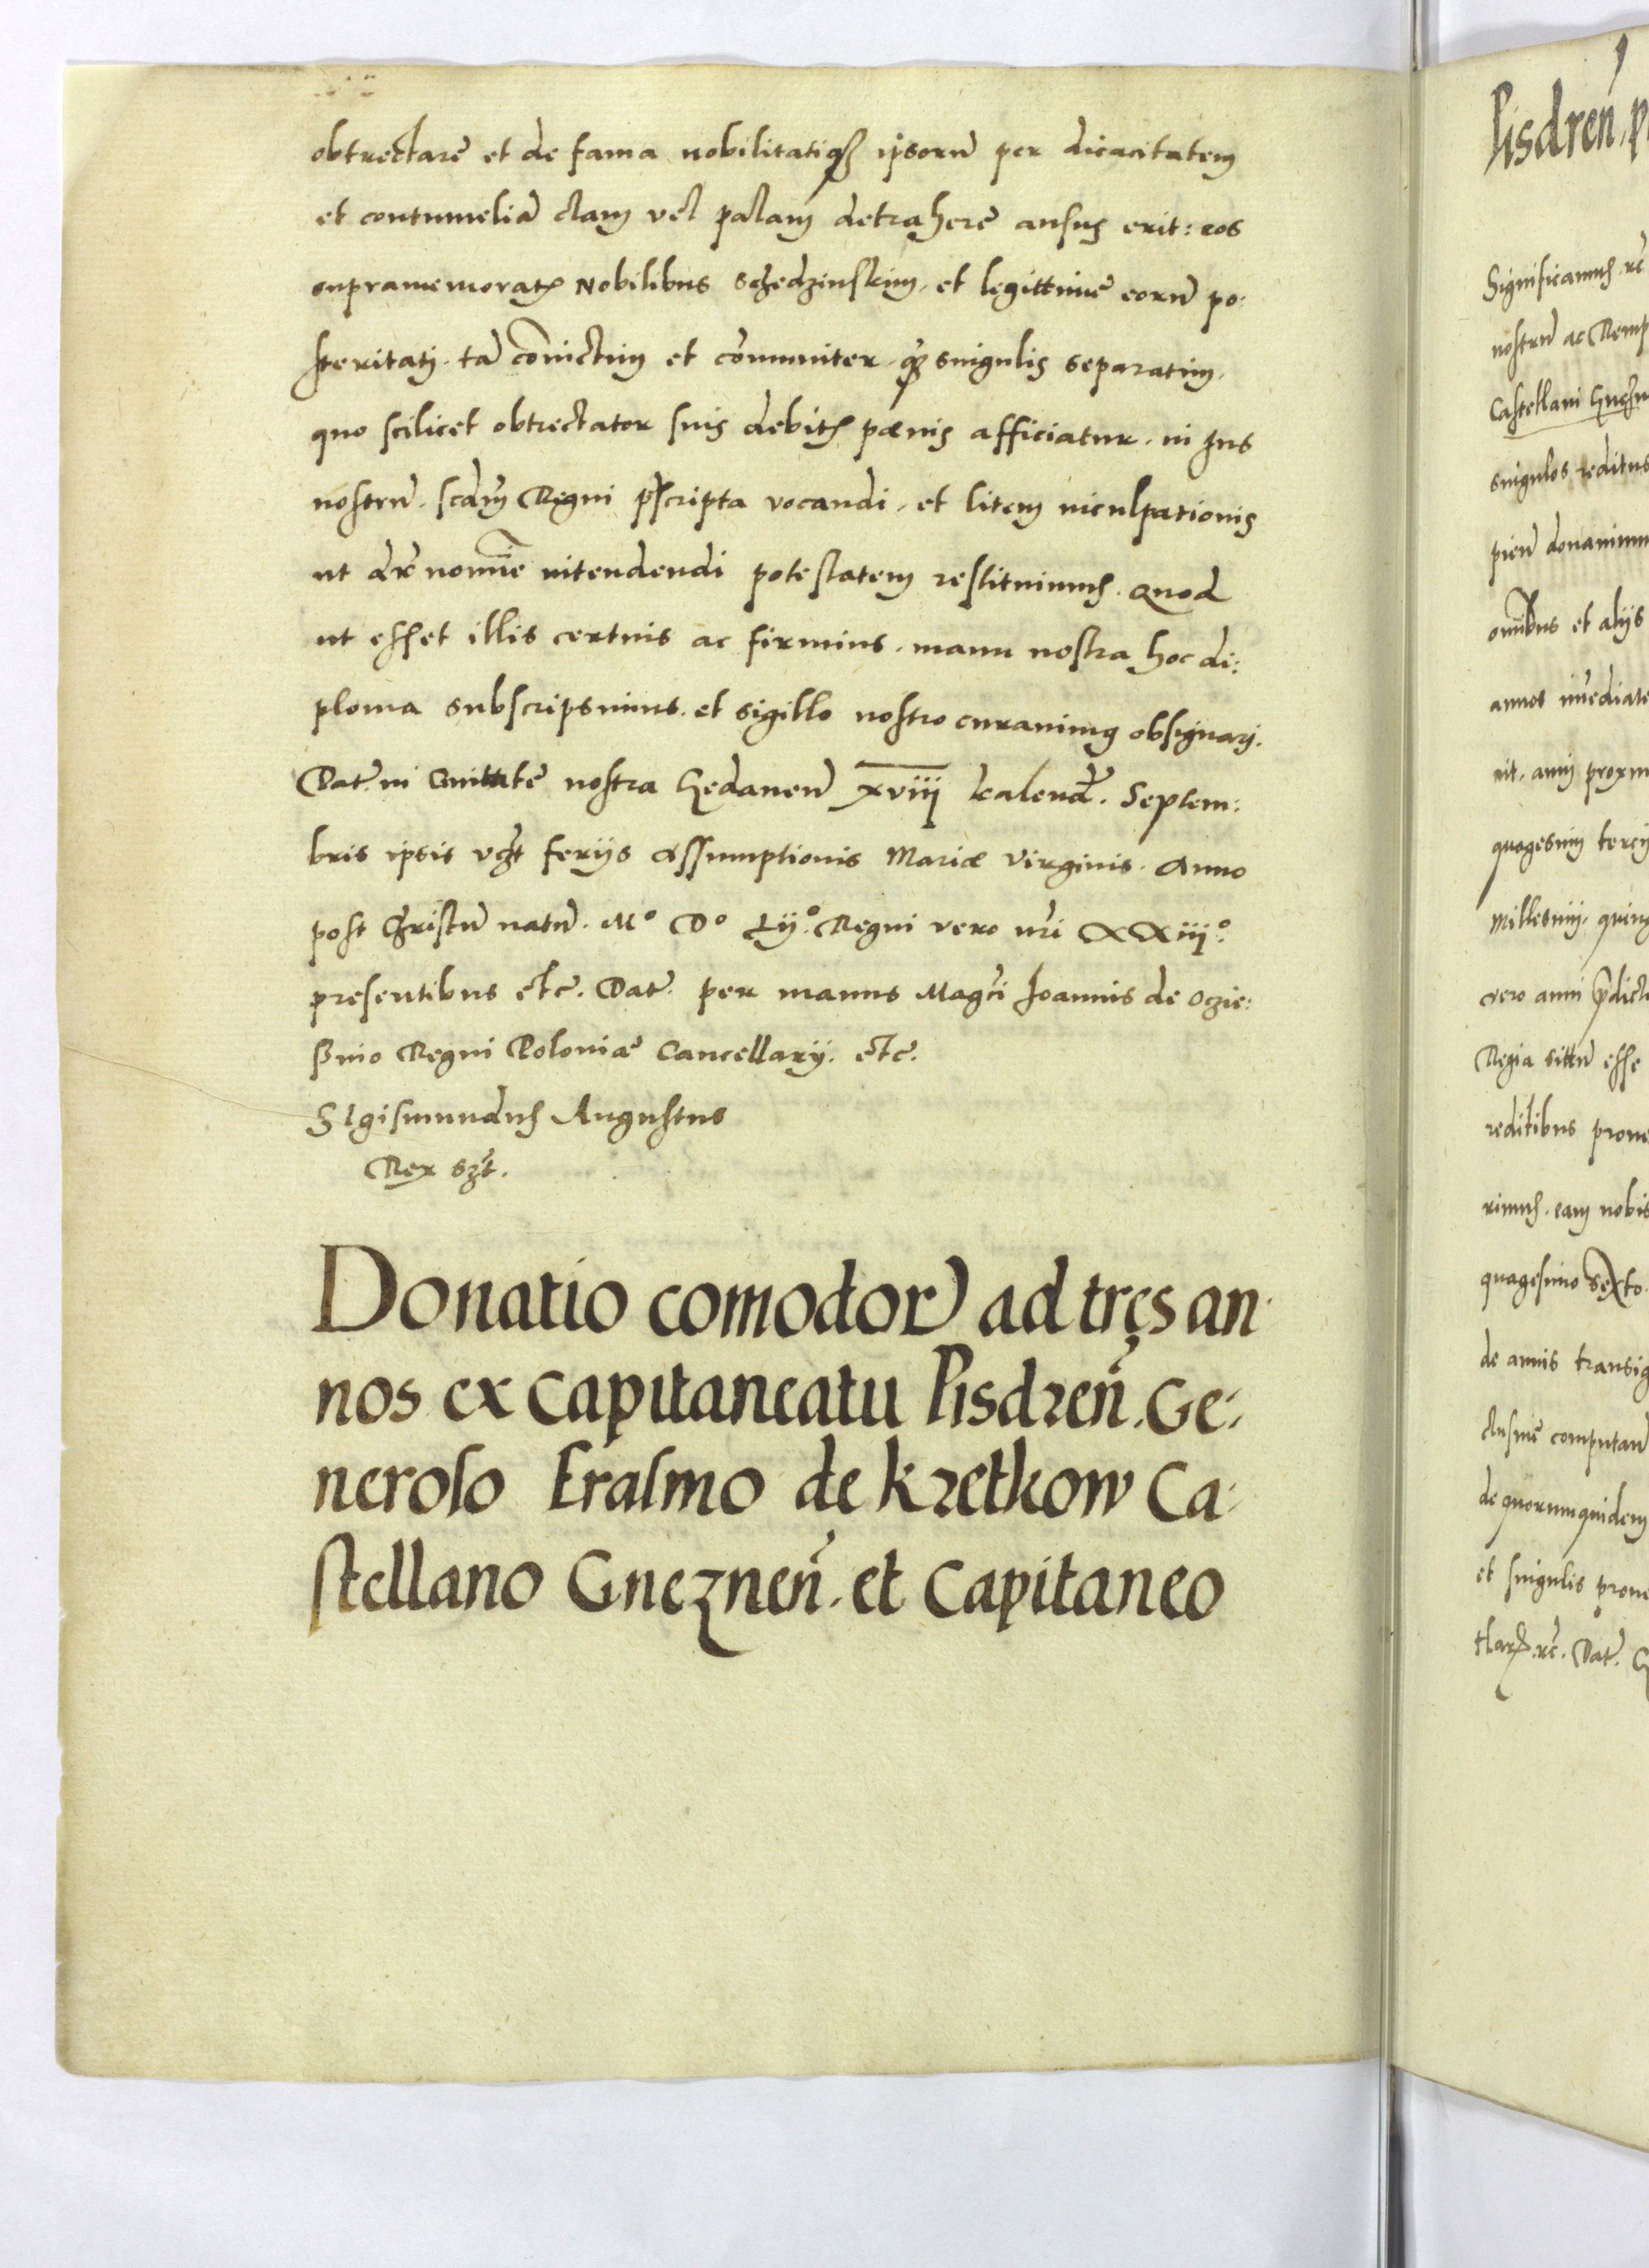 obtrectare et de fama nobilitatiqȝ ipsorū per dicacitatem
et contumeliā clam vel palam detrahere ausus erit: eos
supramemoratꝭ Nobilibus Schedzinskim. et legittime eorū po:
steritati. tā cōiūctim et cōmuniter. qȝ singulis separatim.
quo scilicet obtrectator suis debitꝭ pœnis afficiatur. in Ius
nostrū. scdm̄ Regni p̄scripta vocandi. et litem inculpationis
ut dr̄ nomīe intendendi potestatem restituimus. Quod
ut esset illis certius ac firmius. manu nostra hoc di:
ploma subscripsimus. et sigillo nostro curauimus obsignari.
Dat̄ in Ciuitate nostra Gedanen̄ xviij kalend̄. Septem:
bris ipsis vczt ferijs Assumptionis Mariæ Virginis. Anno
post Christū natū. Mº Dº Lijº. Regni vero nr̄i XXiijº.
presentibus etc̄. Dat̄. per manus Mag̃ci Joannis de Oczie:
ssino Regni Poloniæ Cancellarij. etc̄.
SIgismundus Augustus
Rex szt.
Donatio comodorū ad tręs an
nos ex Capitaneatu Pisdren̄. Ge:
neroso Erasmo de Kretkow Ca:
stellano Gneznen̄. et Capitaneo
Pisdren̄. p
Significamus. rc̄
nostrū ac Remp
Castellani Gnezn
singulos reditus
pien̄ donauimu
omībus et alijs
annos im̄ediate
nit. anni proxim
quagesimi tercij
Millesimi. quing
vero anni p̄dicti
Regia sittū esse
reditibus proue
rimus. eam nobis
quagesimo Sexto.
de annis transig
clusiue computan̄
de quorumquidem
et singulis proue
rc̄. Dat̄. G